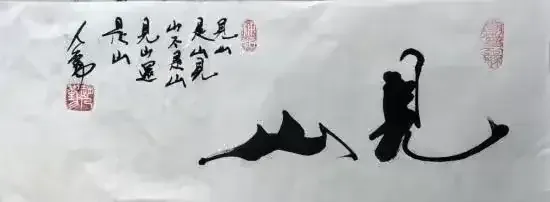 見山
見山
是山見
山不是山
見山還
是山
人